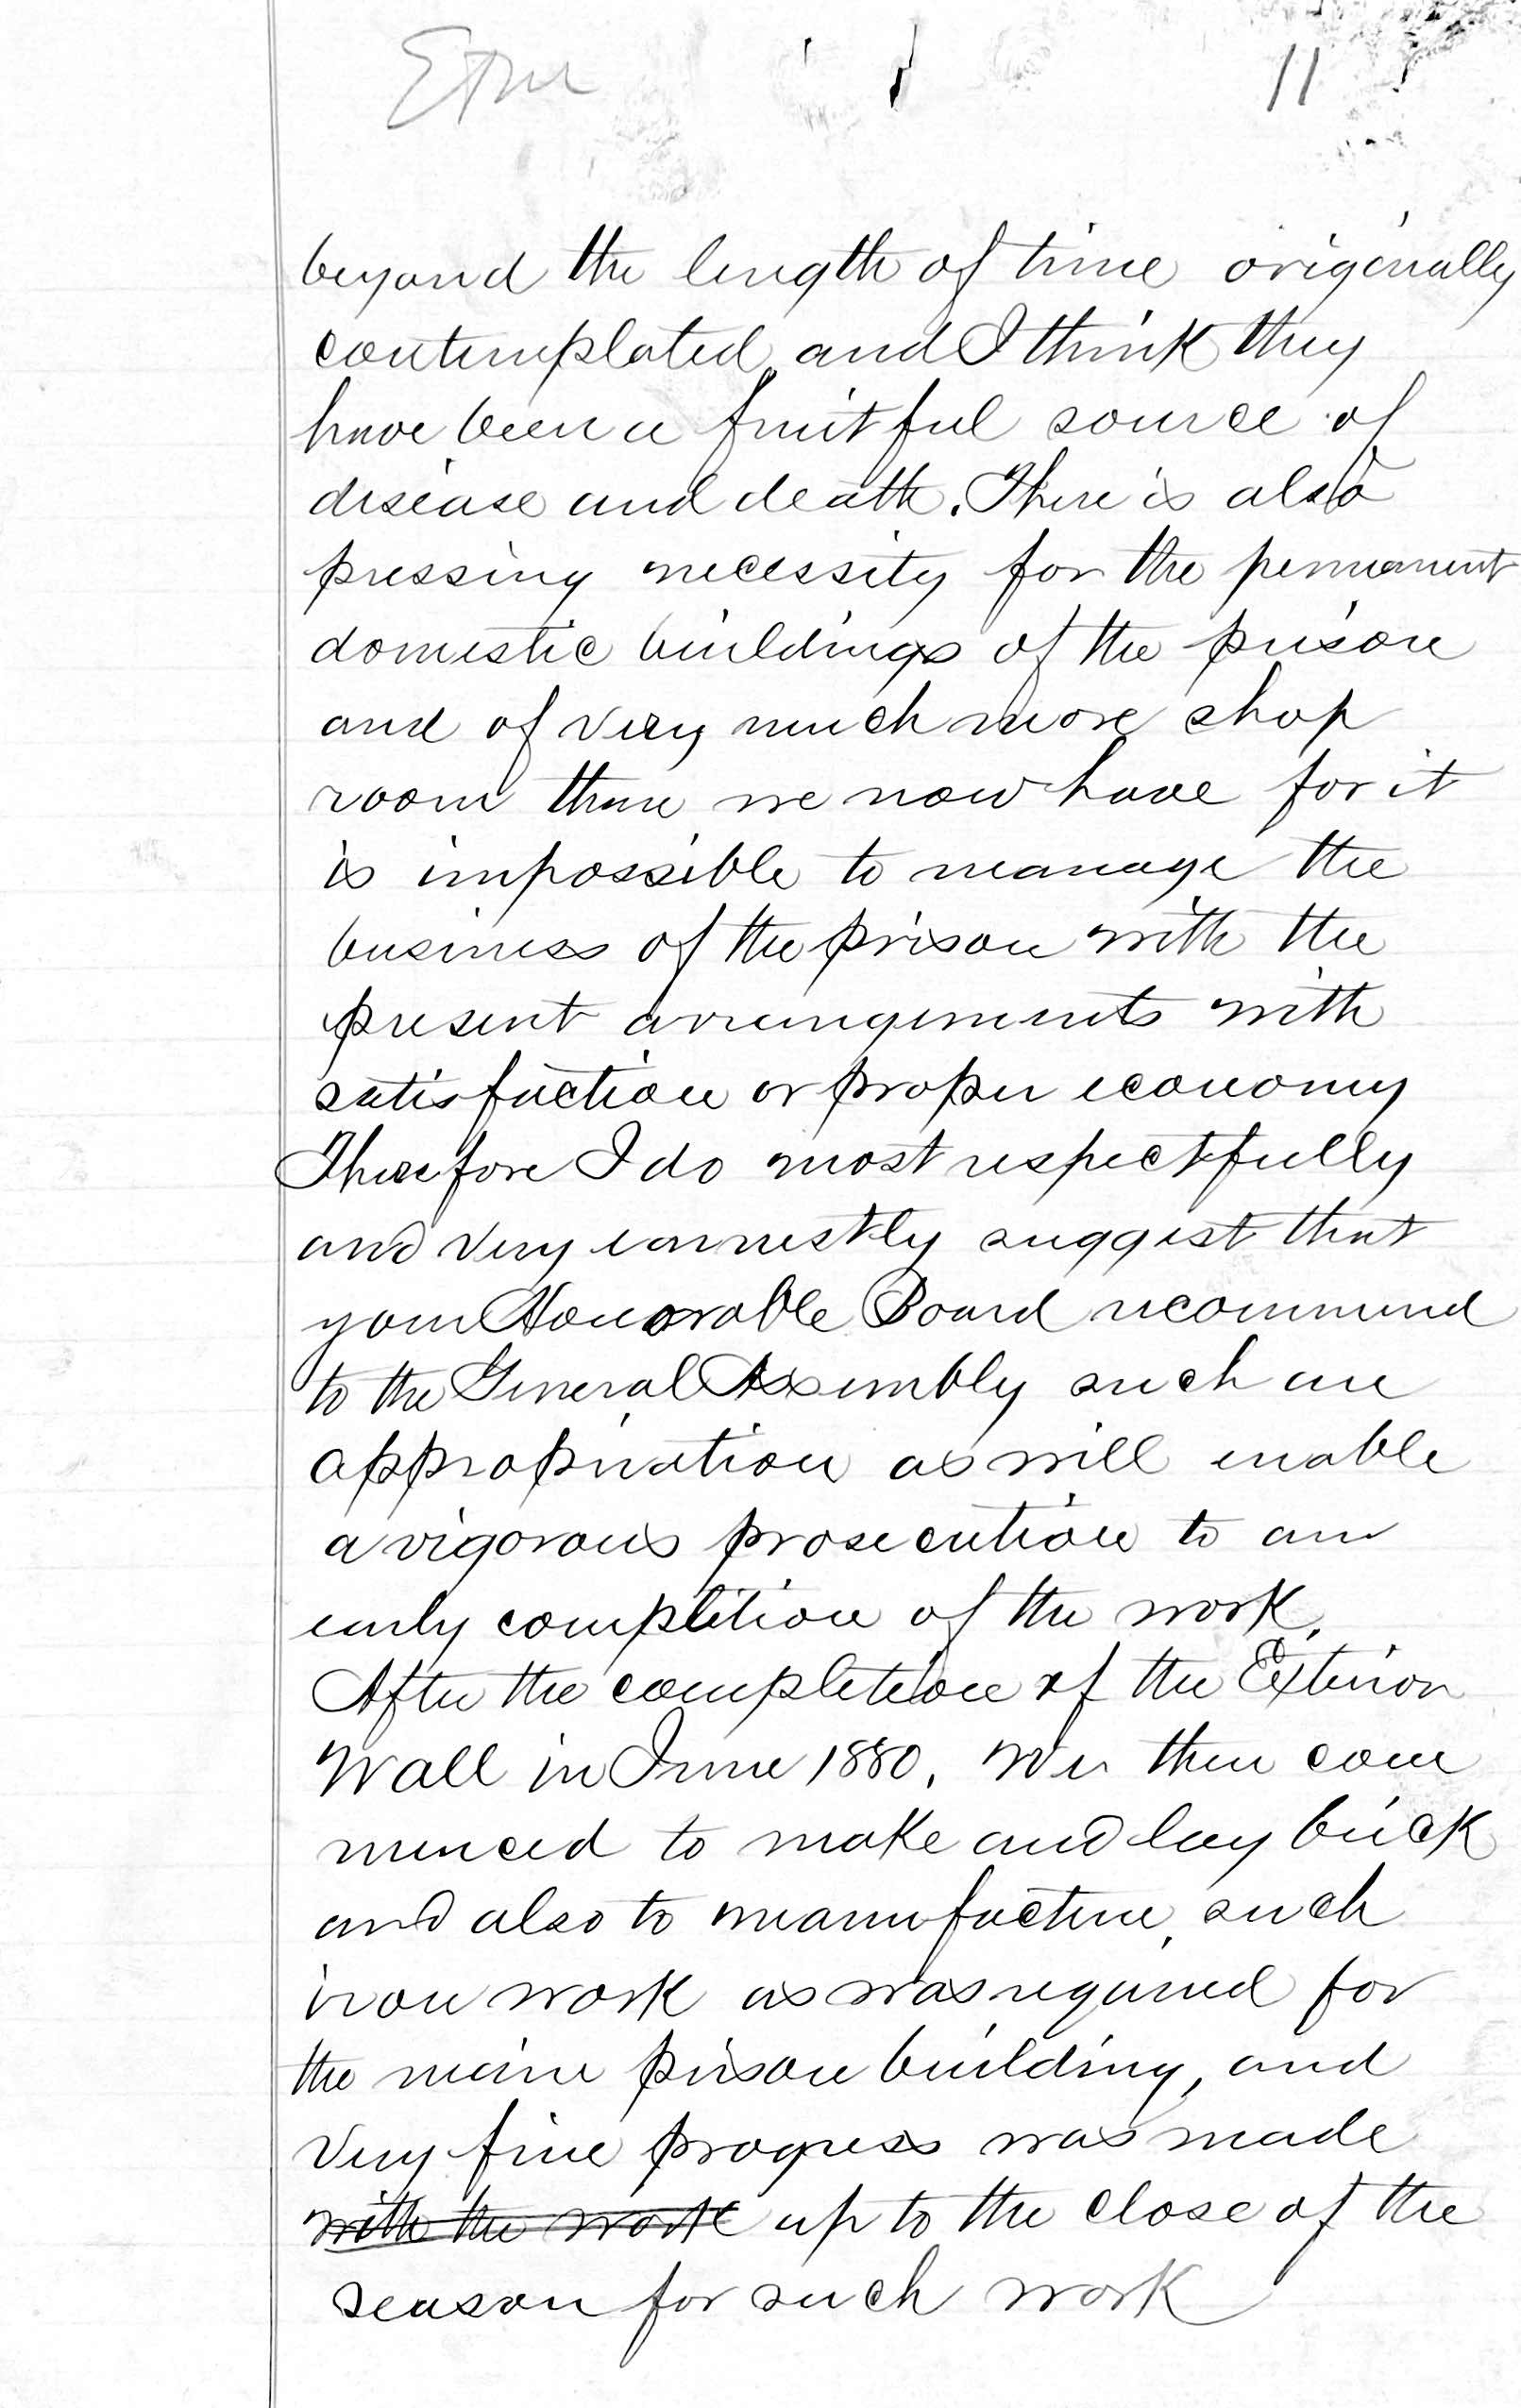 11
beyond the length of time originally
contemplated, and I think they
have been a fruitful source of
disease and death. There is also a
pressing necessity for the permanent
domestic buildings of the prison
and of very much more shop
room than we now have for it
is impossible to manage the
business of the prison with the
present arrangements with
satisfaction or proper economy
Therefore I do most respectfully
and very earnestly suggest that
your Honorable Board recommend
to the General Assembly such an
appropriation as will enable
a vigorous prosecution to an
early completion of the work.
After the completion of the Exterior
Wall in June 1880, We then com
menced to make and lay brick
and also to manufacture, such
iron work as was required for
the main prison building, and
very fine progress was made
with the work up to the close of the
season for such work